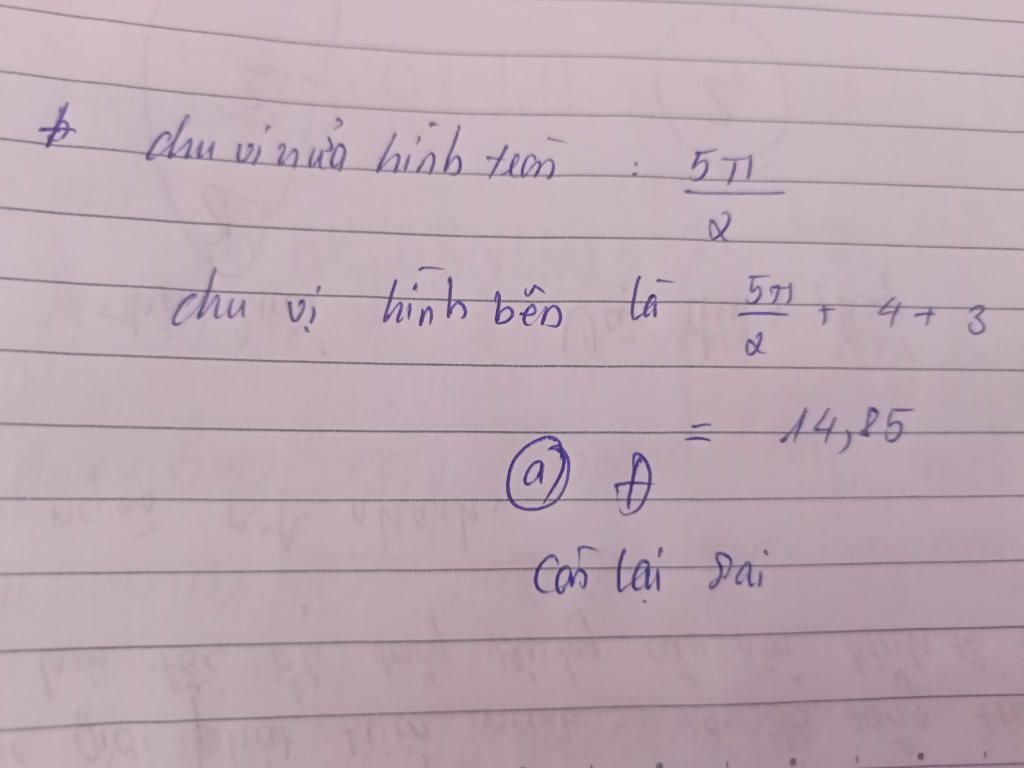 chu vi nửa hình tròn : 5π/2
chu vị hình bên là 5π/2 + 4 + 3
= 14,85
a Đ
Còn lại sai